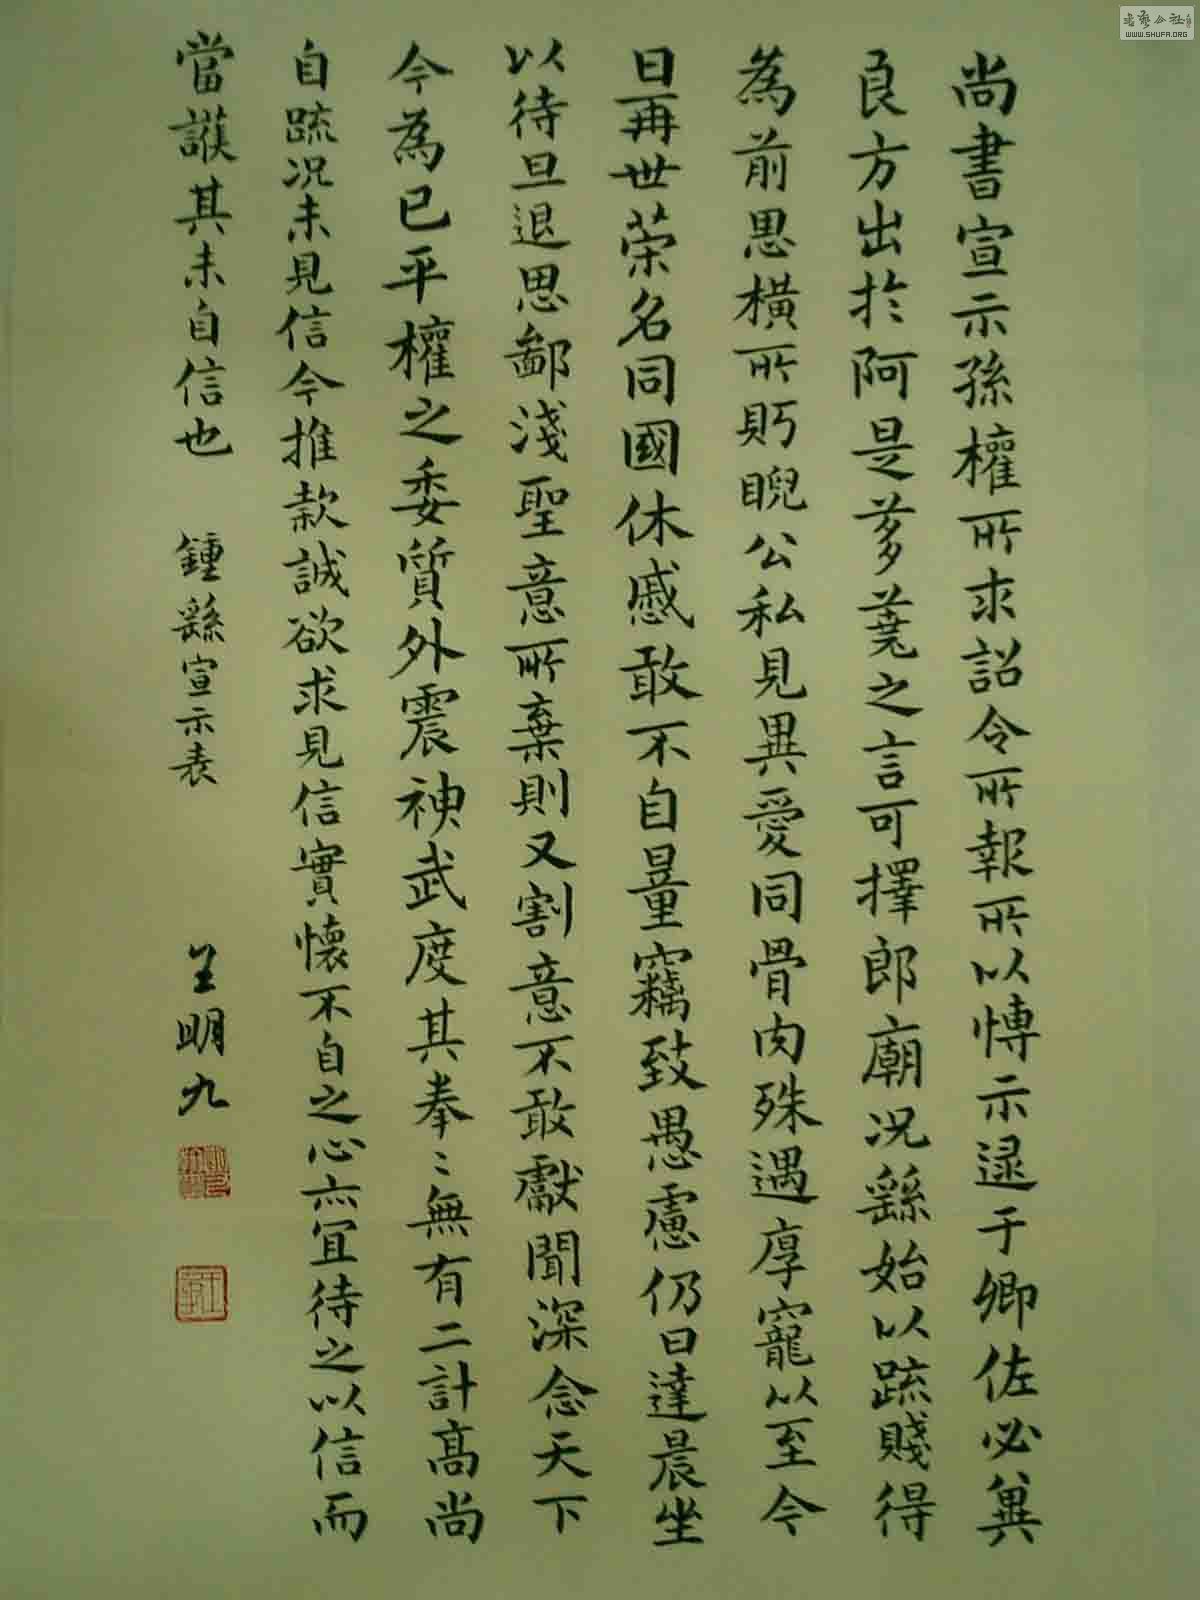 尚書宣示孫權所求詔令所報所以博示逮于卿佐必冀
良方出於阿是芻蕘之言可擇郎廟况繇始以疏賤得
為前思橫所眄睨公私見異愛同骨肉殊遇厚寵以至今
日再世荣名同國休慼敢不自量竊致愚慮仍日達晨坐
以待旦退思鄙淺聖意所棄則又割意不敢獻聞深念天下
今為已平權之委質外震神武度其拳〻無有二計高尚
自疏况未見信今推款誠欲求見信實懷不自之心亦宜待之以信而
當護其未自信也 鍾繇宣示表 王明九
書藝公社
WWW.SHUFA.ORG